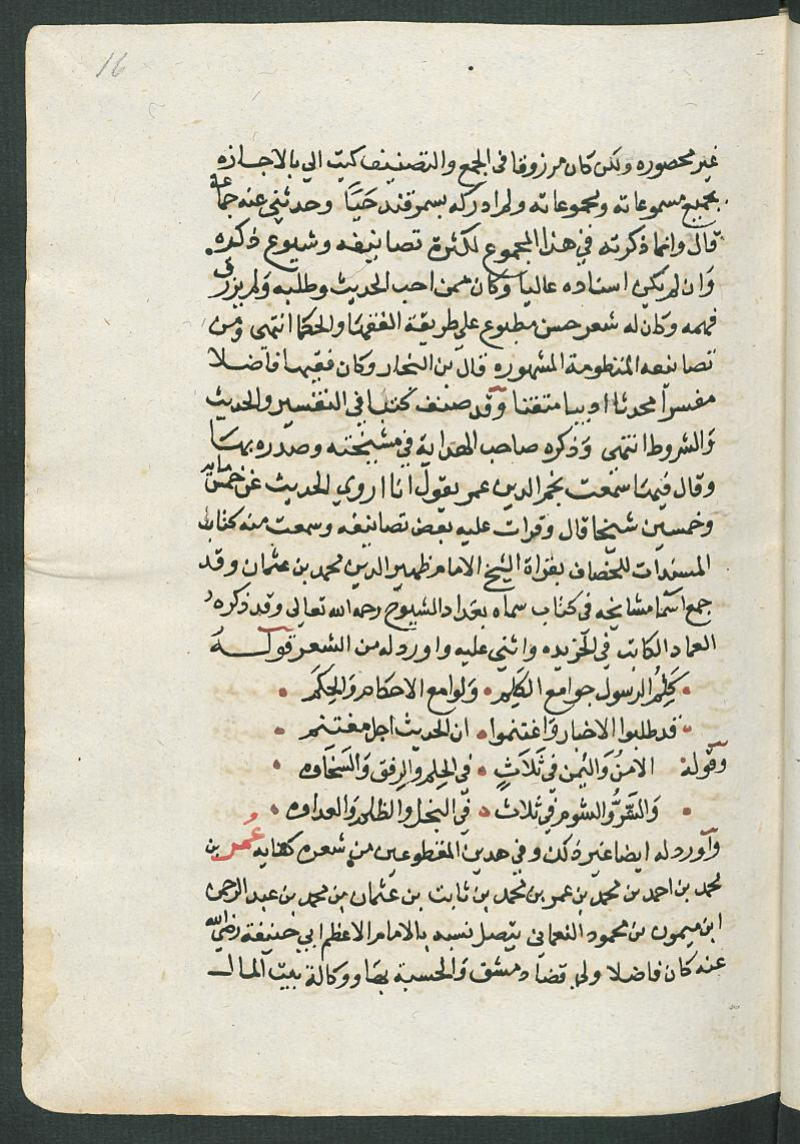 16
غير محصوره ولكن كان مرزوقا في الجمع والتصنيف كتب الي بالاجازه
بجميع مسموعاته ومجموعاته ولم ادركه بسمرقند حيا وحدثني عنه جماعة
قال وانما ذكرته في هذا المجموع لكثرة تصانيفه وشيوع ذكره
وان لم يكن اسناده عاليا وكان ممن احب الحديث وطلبه ولم يرزق
فهمه وكان له شعر حسن مطبوع على طريقة الفقها والحكما انتهى ومن
تصانيفه المنظومة المشهوره قال بن النجار وكان فقيها فاضلا
مفسرا محدثا اديبا متقنا وقد صنف كتبا في التفسير والحديث
والشروط انتهى وذكره صاحب الهداية في مشيخته وصدره بها
وقال فيها سمعت نجم الدين عمر يقول انا اروي الحديث عن خمس مايه
وخمسين شيخا قال وقرات عليه بعض تصانيفه وسمعت منه كتاب
المسندات للخصاف بقراة الشيخ الامام ظهير الدين محمد بن عثمان وقد
جمع اسما مشايخه في كتاب سماه بعداد الشيوخ رحمه الله تعالى وقد ذكره
العماد الكاتب في الخريده واثنى عليه واورد له من الشعر قوله
كَلِمُ الرسول جوامع الكَلِم • ولوامع الاحكام والحِكَم •
قد طلبوا الاخبار واغتنموا • ان الحديث اجل مغتنم •
وقوله الامنُ واليُمن في ثَلَاثٍ • في الحِلم والرِفق والسَخَاوه •
والشرُّ والشوم في ثلاث • في البخل والظلم والعداوه •
واورد له ايضا غير ذلك وفي هدين المقطوعين من شعره كفايه عُمر بن
محمد بن احمد بن محمد بن عمر بن محمد بن ثابت بن عثمان بن محمد بن عبد الرحمن
ابن ميمون بن محمود النعماني يتصل نسبه بالامام الاعظم ابي حنيفة رضي الله
عنه كان فاضلا ولي قضاء دمشق والحسبة بها ووكالة بيت المال